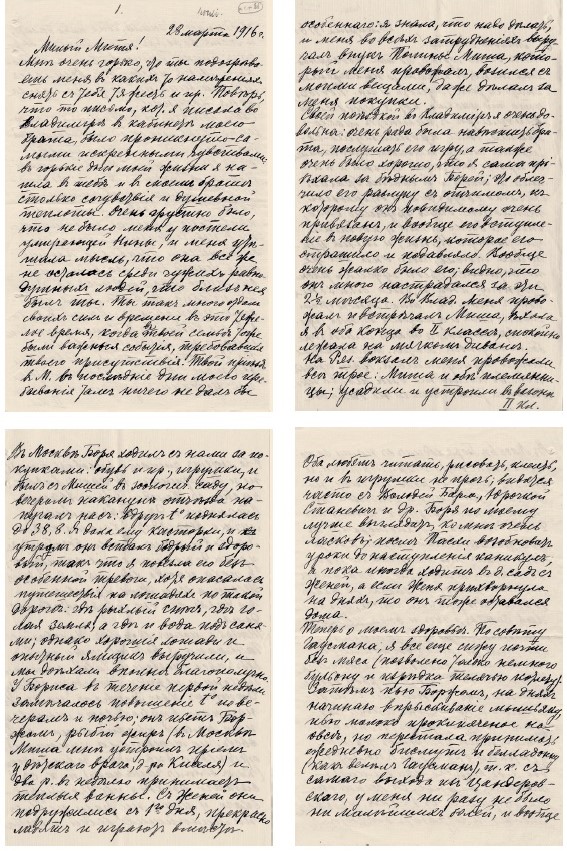 1.
28 марта 1916 г.
Милый Митя!
Мне очень горько, что ты подозрева-
ешь меня в каких-то намерениях
снять с тебя, т. я. и пр. Поверь,
что то письмо, кот. я писала во
Владимире в кабинете моего
брата, было проникнуто са-
мыми искренними чувствами;
в горькие дни моей жизни я на-
шла в тебе и в своем брате
столько сочувствия и душевной
теплоты. Очень грустно было,
что не было меня у постели
умирающей Нины, и меня уте-
шала мысль, что она все же
не осталась среди чужих равно-
душных людей, что близ нея
был ты. Ты так много отдал
своих сил и времени в это тяже-
лое время, когда в твоей семье тоже
были важныя события, требовавшия
твоего присутствия. Твой приезд
в М. в последние дни моего пре-
бывания там ничего не дал бы
особеннаго: я знала, что надо делать,
и меня во всех затруднениях выру-
чал внук Миша, кото-
рый меня провожал, возился с
моими вещами, даже делал за
меня покупки.
Своей поездкой в Владимир я очень до-
вольна: очень рада была навестить бра-
та, послушать его игру, а также
очень было хорошо, что я сама при-
ехала за бедным Борей; это облег-
чило его разлуку с отчимом, к
которому он повидимому очень
привязан, и вообще его вступле-
ние в новую жизнь, которое его
страшило и подавляло. Вообще
очень жалко было его; видно, что
он много настрадался за эти
2½ месяца. В Влад. меня прово-
жал и встречал Миша, ехала
я в оба конца во II классе, спокойно
лежала на мягком диване.
На Ряз. вокзале меня провожали
все трое: Миша и обе племянни-
цы; усадили и устроили в вагоне
II кл.
В Москве Боря ходил с нами за по-
купками: обувь и пр., игрушки, и
был с Мишей в зоологич. саду, но
вечером накануне отъезда на-
пугал нас: вдруг t° поднялась
до 38,8. Я дала ему касторки, и к
утру он встал бодрый и здоро-
вый, так что я повезла его без
особенной тревоги, хотя опасалась
путешествия на лошадях по такой
дороге: где рыхлый снег, где го-
лая земля, а где и вода под саня-
ми; однако хорошия лошади и
опытный ямщик выручили, и
мы доехали вполне благополучно.
У Бориса в течение первой недели
замечалось повышение t° по ве-
черам и ночью; он пьет Бор-
жом, рыбий жир (в Москве
Миша мне устроил прием
у детскаго врача, д-ра Киселя) и
два р. в неделю принимает
теплыя ванны. С Женей они
подружились с 1го дня, прекрасно
ладят и играют вместе.
Оба любят читать, рисовать, клеить,
но и в игрушки не прочь, видятся
часто с Володей Барто, Юрочкой
Станевич и др. Боря по моему
лучше выглядит, ко мне очень
ласков; после Пасхи возобновит
уроки до наступления каникул,
а пока иногда ходит в д. сад с
Женей, а если Женя прихворнула
на днях, то он тоже оставался
дома.
Теперь о моем здоровье. По совету
Гаусмана, я все еще сижу почти
без мяса (позволено только немного
бульону и изредка телячью котлету).
Затем пью Боржом, на днях
начинаю впрыскивание мышьяку,
пью молоко прокипяченое на
овсе, но перестала принимать
ежедневно бисмут и белладонну
(как велел Гаусман), т. к. с
самого выхода из Цандеров-
скаго, у меня ни разу не было
ни малейших болей, и вообще